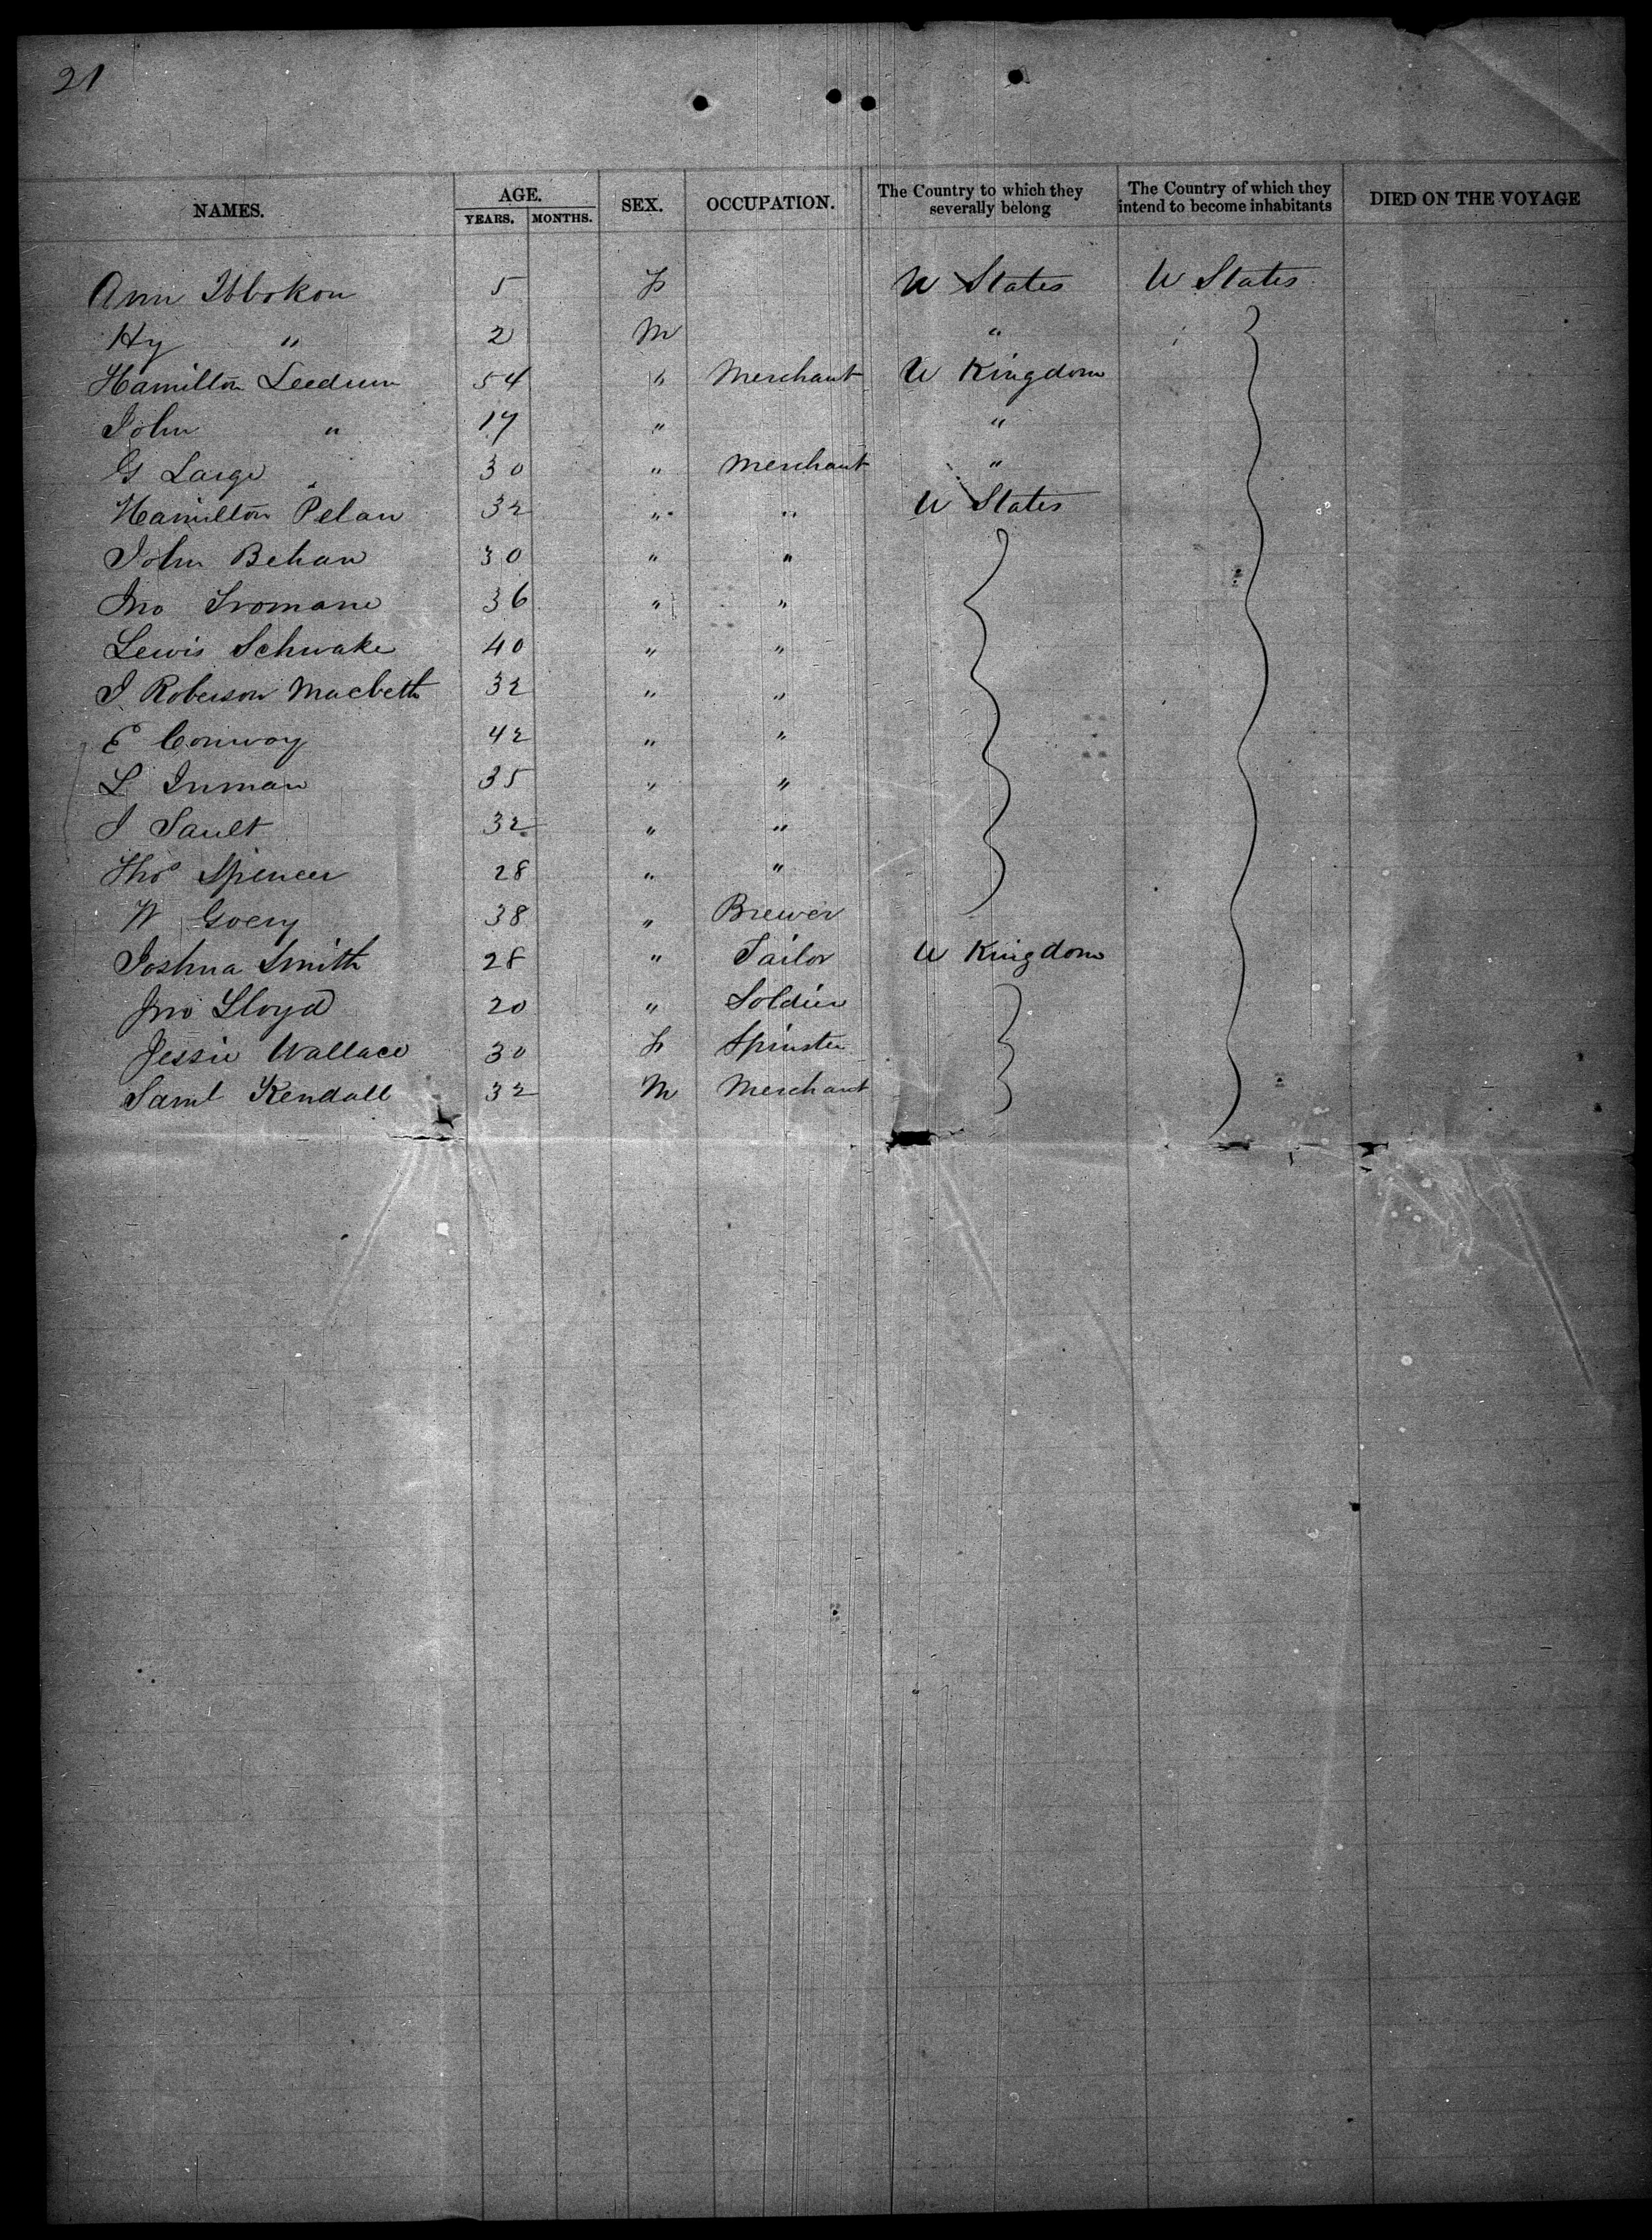 21
NAMES. AGE. SEX. OCCUPATION. The Country to which they severally belong The Country of which they intend to become inhabitants DIED ON THE VOYAGE
YEARS. MONTHS.
Ann 5 F U States U States
Hy " 2 M "
Hamilton Leedum 54 " Merchant U Kingdom
John " 17 " "
G Large 30 " Merchant "
Hamilton Pelan 32 " " U States
John Behan 30 " "
Jno 36 " "
Lewis Schwake 40 " "
J Roberson Macbeth 32 " "
E Conway 42 " "
L Inman 35 " "
J Sault 32 " "
Thos Spencer 28 " "
W Goery 38 " Brewer
Joshua Smith 28 " Tailor U Kingdom
Jno Lloyd 20 " Soldier
Jessie Wallace 30 F Spinster
Saml Kendall 32 M Merchant